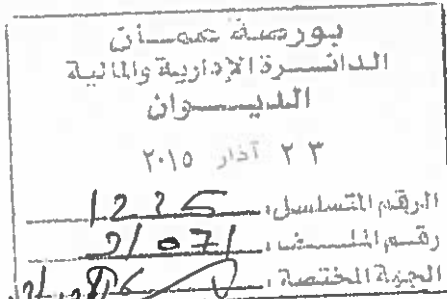 بورصة عمان
الدائرة الإدارية والمالية
الديوان
٢٣ آذار ٢٠١٥
الرقم المتسلسل: 1225
رقم الملف:
الجهة المختصة: